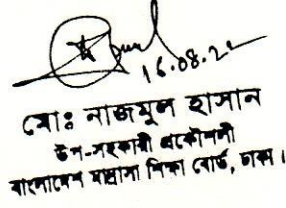 16.08.22
মোঃ নাজমুল হাসান
উপ-সহকারী প্রকৌশলী
বাংলাদেশ মাদ্রাসা শিক্ষা বোর্ড, ঢাকা।